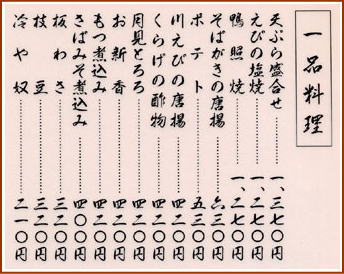 一品料理
天ぷら盛合せ 一、三七〇円
えびの塩焼 一、二七〇円
鴨照焼 一、二七〇円
そばがきの唐揚 六三〇円
ポテト 五三〇円
川えびの唐揚 四二〇円
くらげの酢物 四二〇円
月見とろろ 四二〇円
お新香 四二〇円
もつ煮込み 四二〇円
さばみそ煮込み 四二〇円
板わさ 三二〇円
枝豆 三二〇円
冷や奴 二一〇円